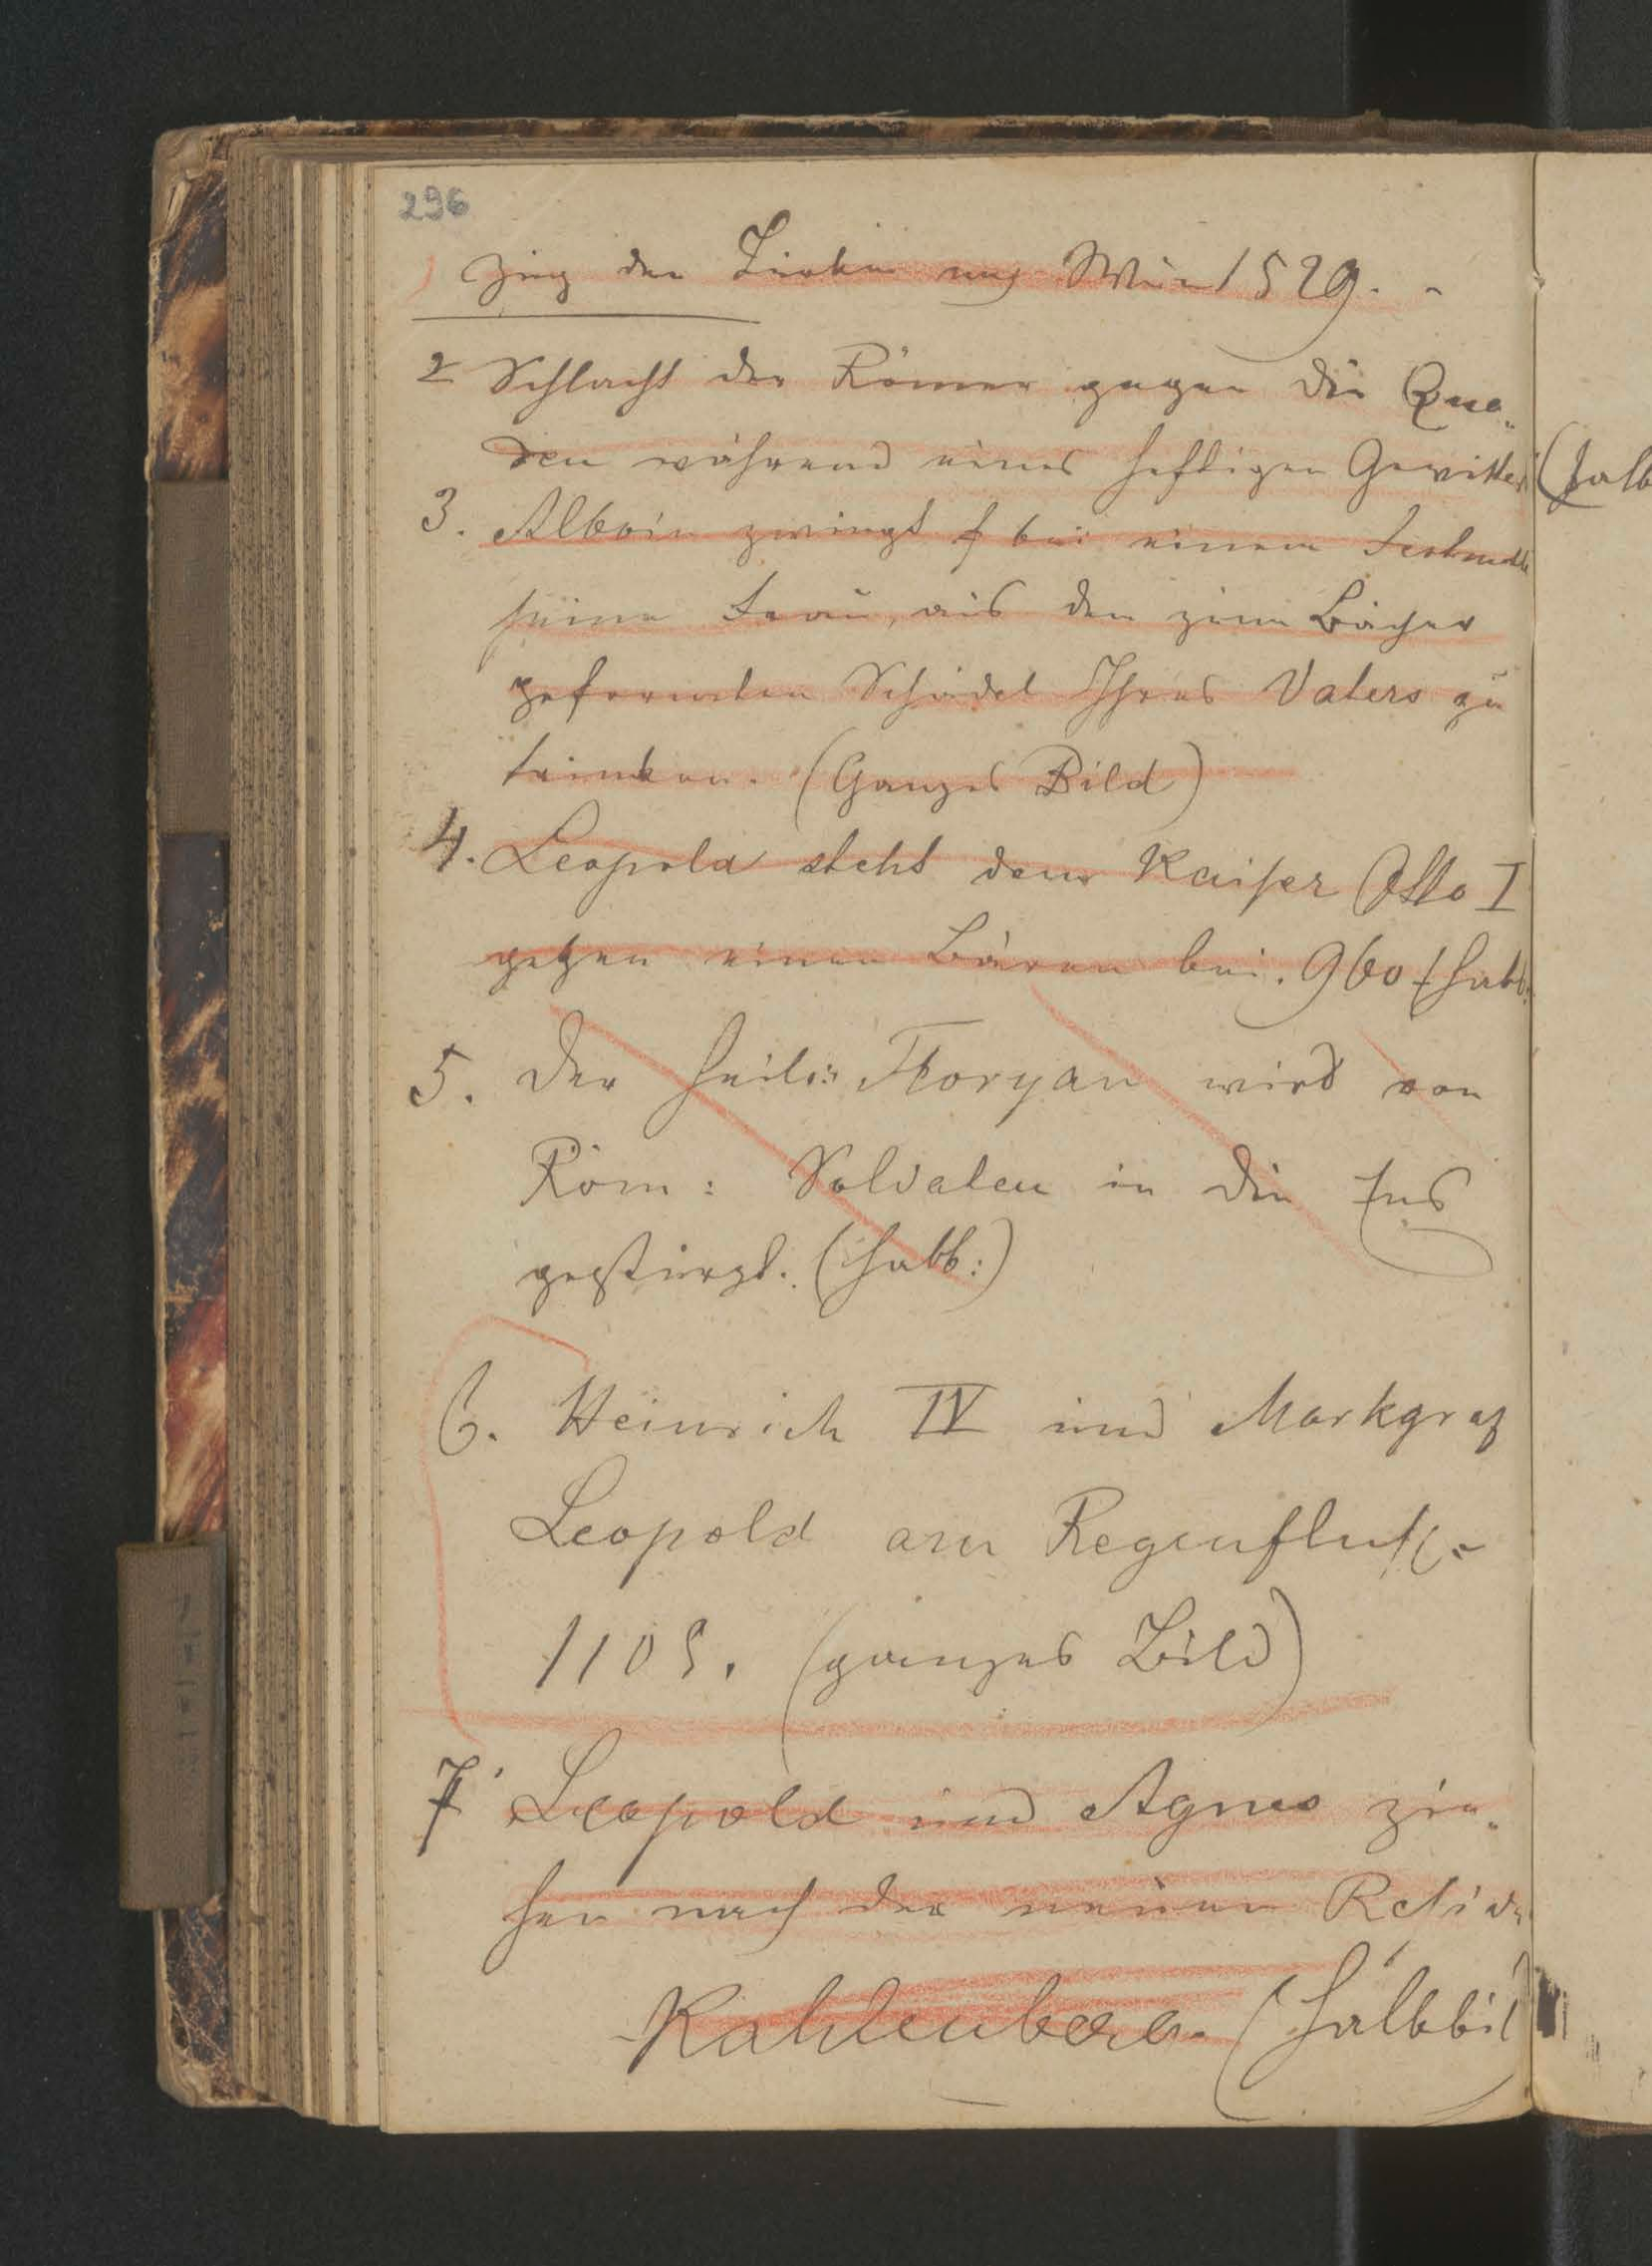 296
) Zug der Türken nach Wien 1529.
2 Schlacht der Römer gegen die Qua„
den während eines heftigen Gewitters (halb
3. Alboin zwingt bei einem Festmahle
seine Frau, aus dem zum Bächer
geformten Schädel Ihres Vaters zu
trinken. (Ganzes Bild)
4. Leopold steht dem Kaiser Otto I
gegen einen Bären bei. 960 (halb:
5. Der heil: Floryan wird von
Röm: Soldaten in die Ens
gestürzt. (halb:)
6. Heinrich IV und Markgraf
Leopold am Regenfluß.
1105. (ganzes Bild)
7. Leopold und Agnes zie„
hen nach der neuen Resid
Kahlenberg (Halbbil